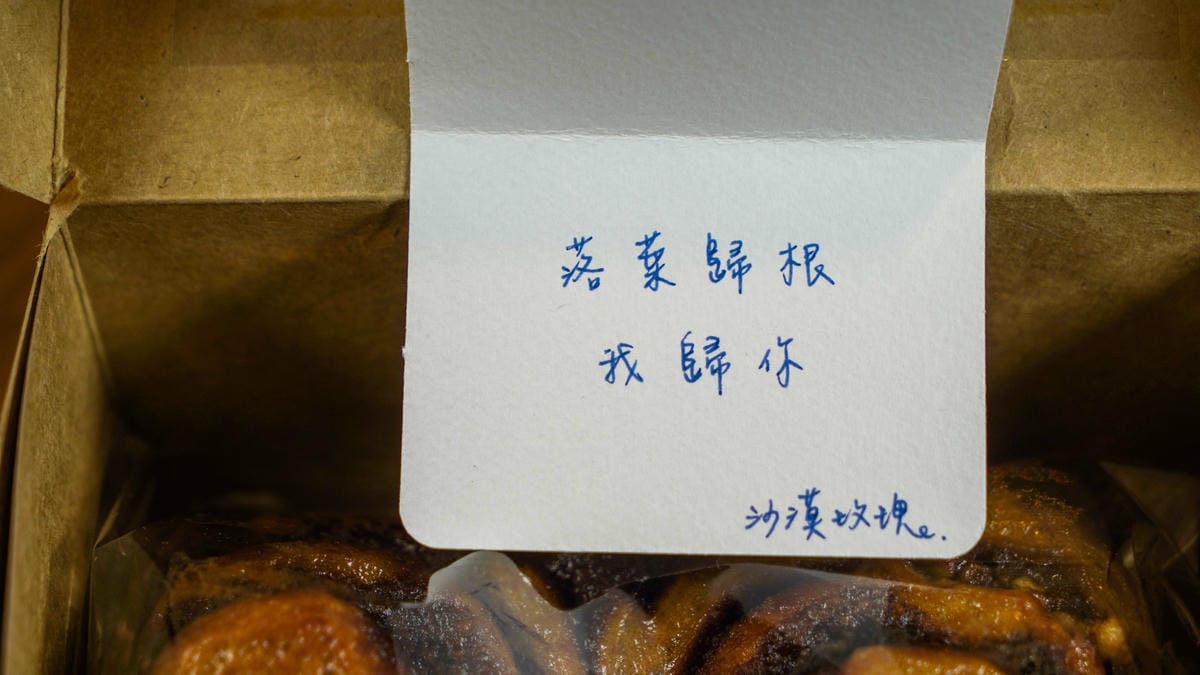 落葉歸根
我歸你
沙漠玫瑰。